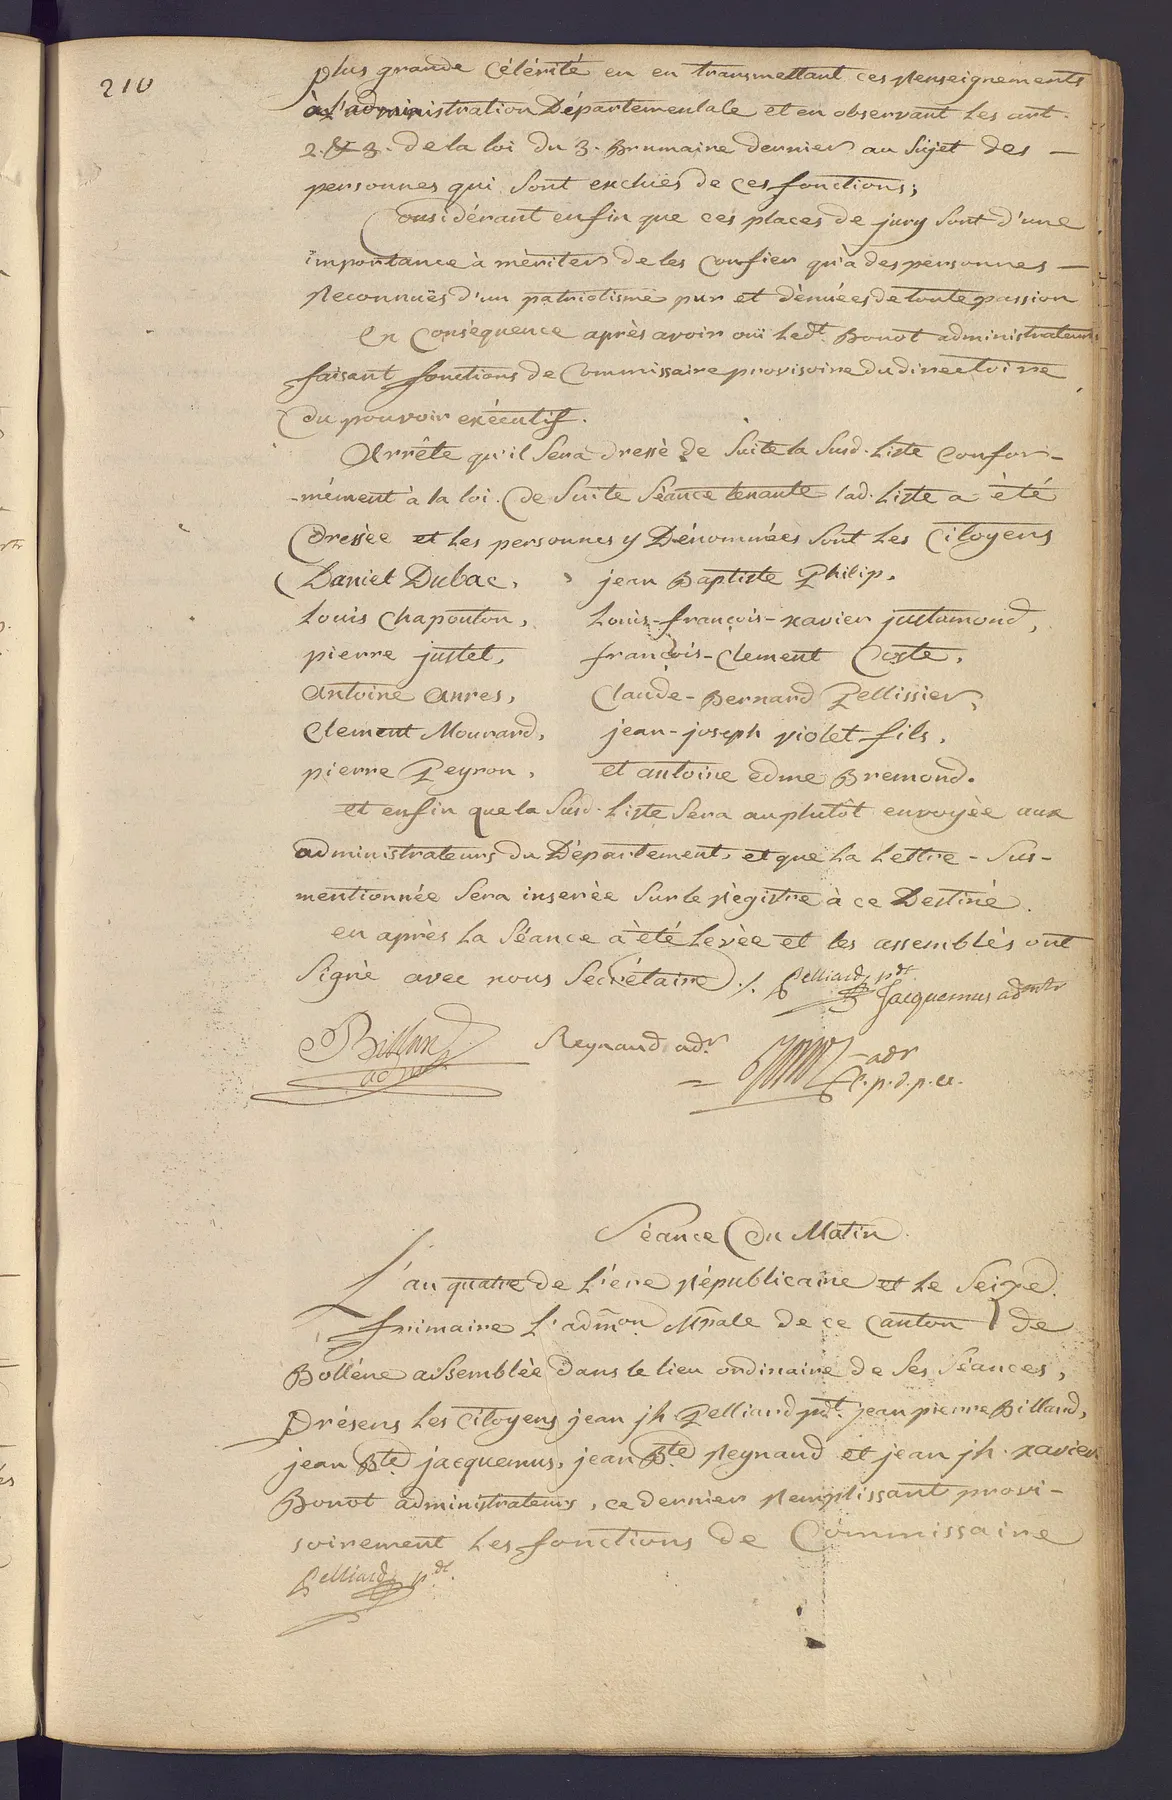 210
plus grande célérité en en transmettant ces renseignements
à l'administration Départementale et en observant les art.
2. & 3. de la loi du 3. Brumaire dernier au sujet des —
personnes qui sont exclues de ces fonctions;
Considérant enfin que ces places de jury sont d'une
importance à mèriter de les confier qu'à des personnes —
reconnuës d'un patriotisme pur et dènuées de toute passion
en consèquence après avoir ouï led.t Bonot administrateur
faisant fonctions de commissaire provisoire du directoire
du pouvoir exécutif.
Arrête qu'il sera dressè de suite la susd. liste confor-
-mément à la loi. de suite séance tenante lad. liste a èté
dressèe et les personnes y Dénommées sont les citoyens
Daniel Dubac, jean Baptiste Philip,
Louis Chapouton, Louis-françois-xavier justamond,
pierre justet, françois-clement Coste,
antoine anres, Claude-Bernard Pellissier,
Clement Mourard, jean-joseph violet fils,
pierre Peyron, et antoine edme Bremond.
et enfin que la susd. liste sera au plutôt envoyèe aux
administrateurs du Département, et que la lettre - sus-
mentionnée sera inserèe sur le règistre à ce Destiné.
en après la séance à èté levèe et les assemblés ont
signè avec nous Secrétaire ./. Pelliard p.dt
Jacquemus admtr
Billard
adm.
Reynaud ad.r
adr
f. p. d. p. ex.
Séance du Matin
L'an quatre de l'ère républicaine et le seize
frimaire l'admon Mpale de ce canton de
Bollène assemblèe dans le lieu ordinaire de ses séances,
Présens les citoyens jean jh. Pelliard pdt. jean pierre Billard,
jean Bte jacquemus, jean Bte Reynaud et jean jh. xavier
Bonot administrateurs, ce dernier remplissant provi-
soirement les fonctions de Commissaire
Pelliard p.dt.